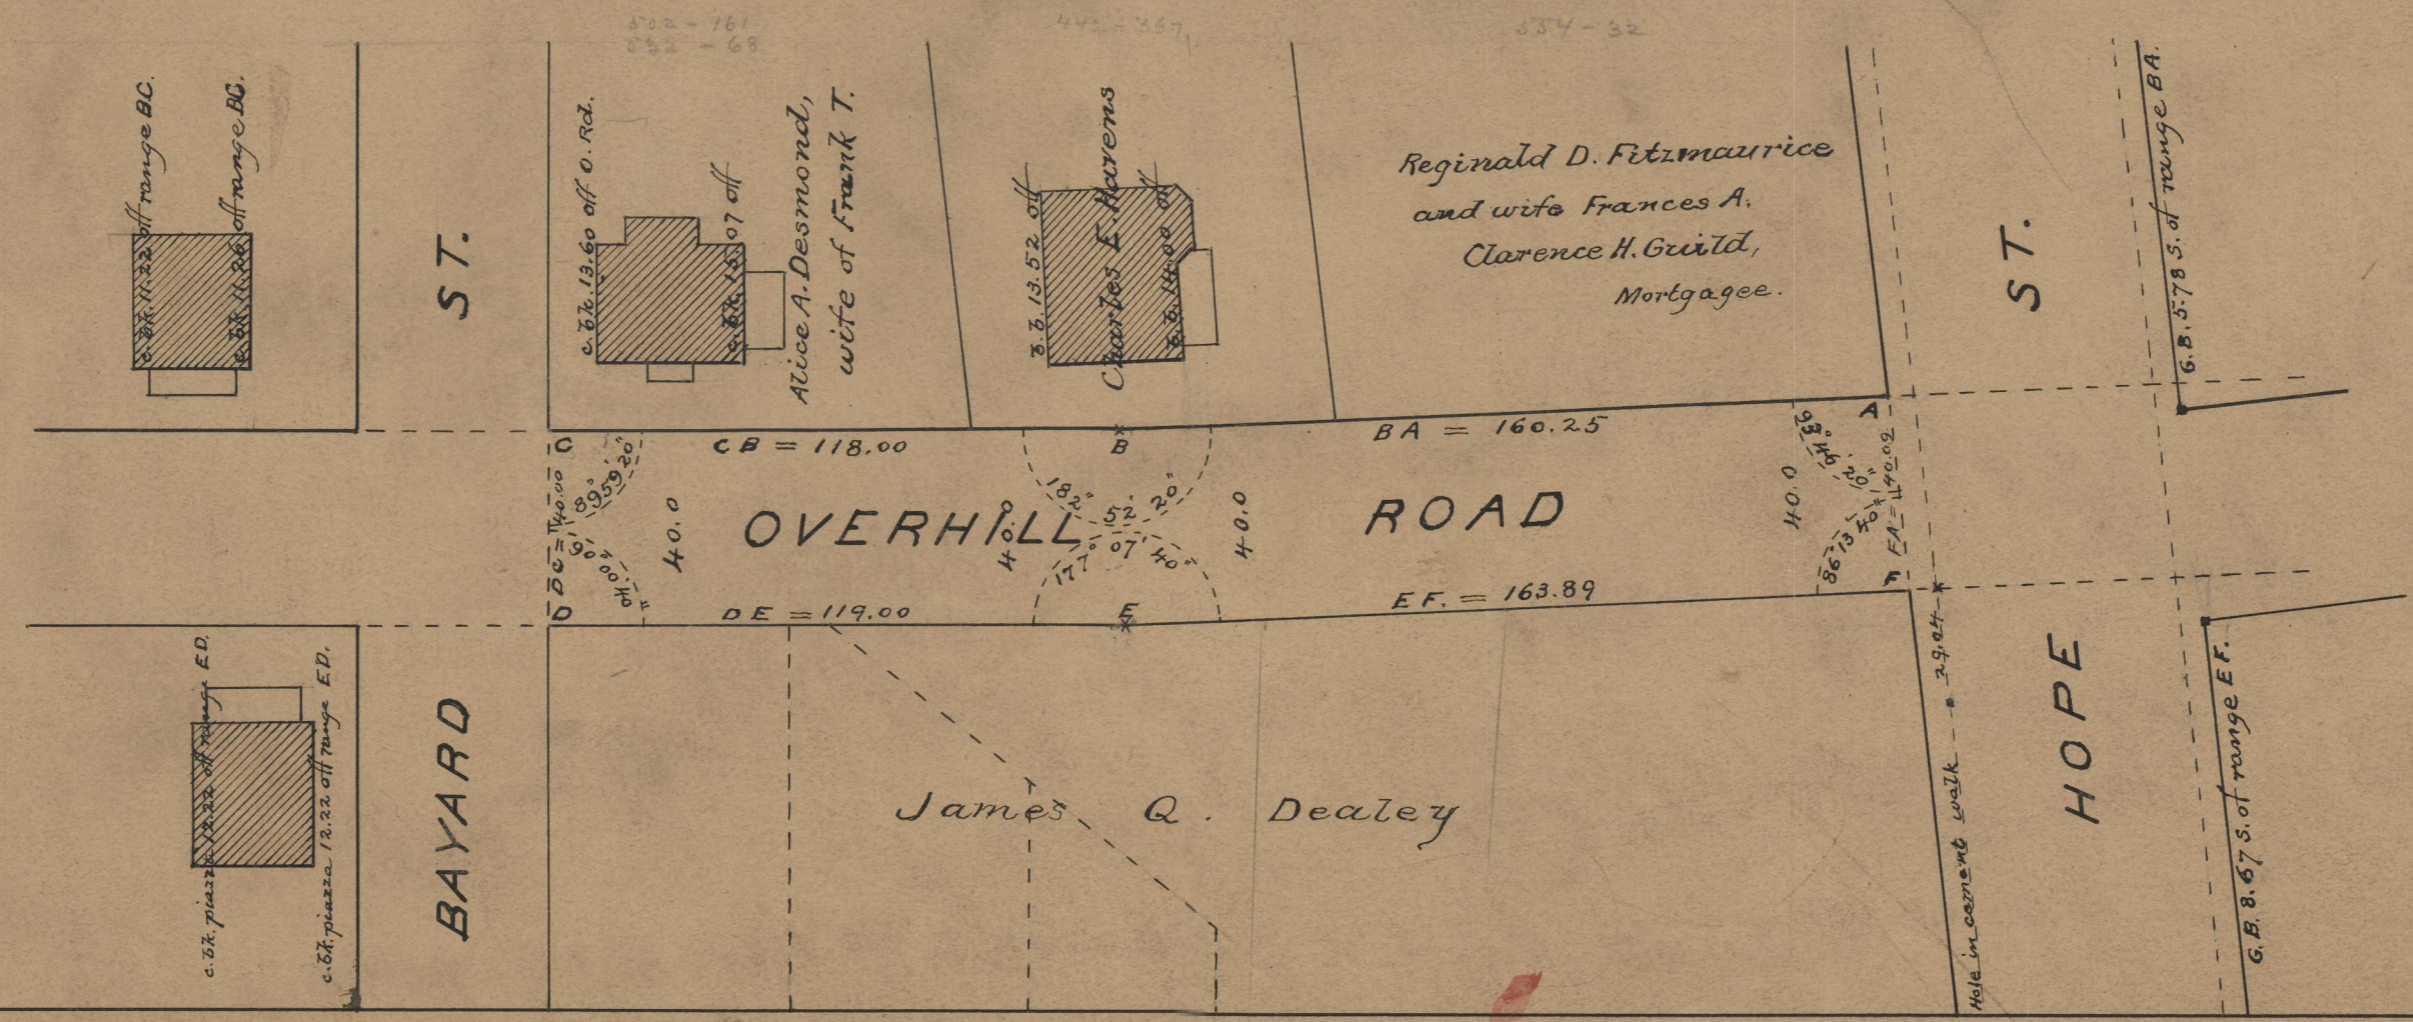 502 - 161
532 - 68
442 - 357
534 - 32
c. bk. 11.22 off range B.C.
c. bk. 11.26 off range B.C.
ST.
c. bk. 13.60 off O. Rd.
c. bk. 15.07 off
Alice A. Desmond,
wife of Frank T.
b. b. 13.52 off
Charles E. Havens
b. b. 14.00 off
Reginald D. Fitzmaurice
and wife Frances A.
Clarence H. Guild,
Mortgagee.
ST.
G.B. 5.78 S. of range BA.
C
CB = 118.00
B
BA = 160.25
A
DC = 40.00
89° 59' 20"
90° 0' 40"
40.0
OVERHILL
40.0
182° 52' 20"
177° 07' 40"
40.0
ROAD
40.0
93° 46' 20"
86° 13' 40"
FA = 40.02
D
DE = 119.00
E
EF. = 163.89
F
c. bk. piazza 12.22 off range ED.
c. bk. piazza 12.22 off range ED.
BAYARD
James Q. Dealey
Hole in cement walk
29.04
HOPE
G.B. 8.67 S. of range EF.